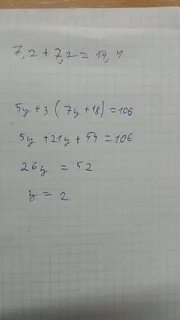 7,2 + 7,2 = 14,4
5y + 3 ( 7y + 18 ) = 106
5y + 21y + 54 = 106
26y = 52
y = 2